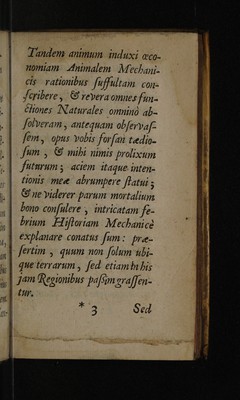 Tandem animum induxi œco-
nomiam Animalem Mechani-
cis rationibus suffultam con-
scribere, & revera omnes fun-
ctiones Naturales omninò ab-
solveram, antequam observas-
sem, opus vobis forsan tædio-
sum, & mihi nimis prolixum
futurum; aciem itaque inten-
tionis meæ abrumpere statui;
& ne viderer parum mortalium
bono consulere, intricatam fe-
brium Historiam Mechanicè
explanare conatus sum: præ-
sertim, quum non solum ubi-
que terrarum, sed etiam in his
jam Regionibus passim grassen-
tur.
* 3 Sed